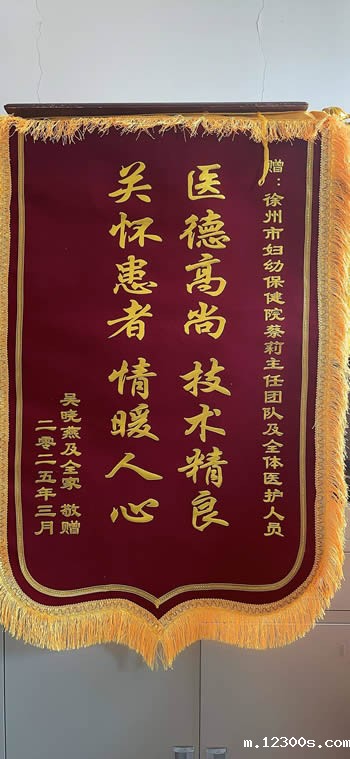 赠：徐州市妇幼保健院蔡莉主任团队及全体医护人员
医德高尚 技术精良
关怀患者 情暖人心
吴晓燕及全家 敬赠
二零二五年三月
m.12300s.com